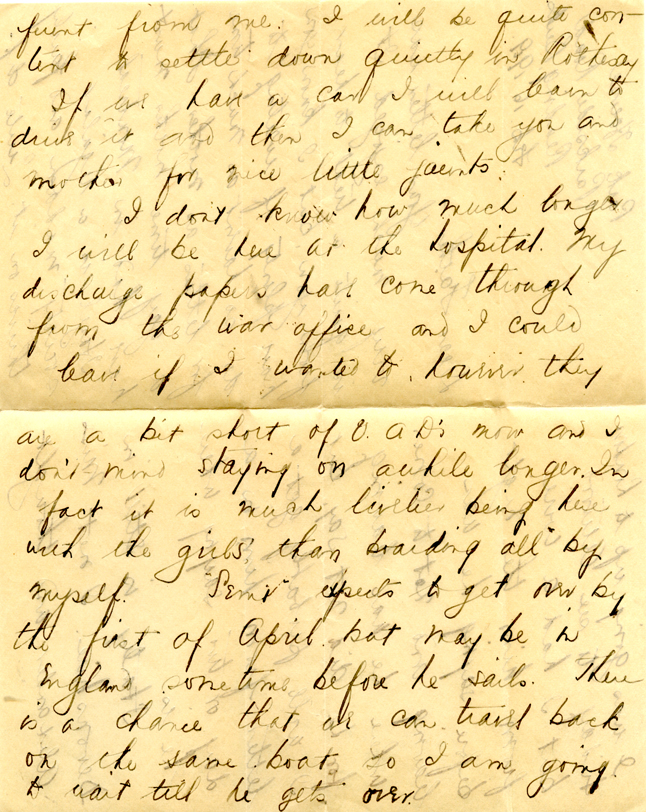 ferent from me. I will be quite con-
tent to settle down quietly in Rothesay
If we have a car I will learn to
drive it and then I can take you and
mother for nice little jaunts.
I don't know how much longer
I will be here at the hospital. My
discharge papers have come through
from the war office and I could
leave if I wanted to, however they
are a bit short of V.A.D's now and I
don't mind staying on awhile longer. In
fact it is much livelier being here
with the girls, than boarding all by
myself. expects to get over by
the first of April but may be in
England sometime before he sails. There
is a chance that we can travel back
on the same boat so I am going
to wait till he gets over.